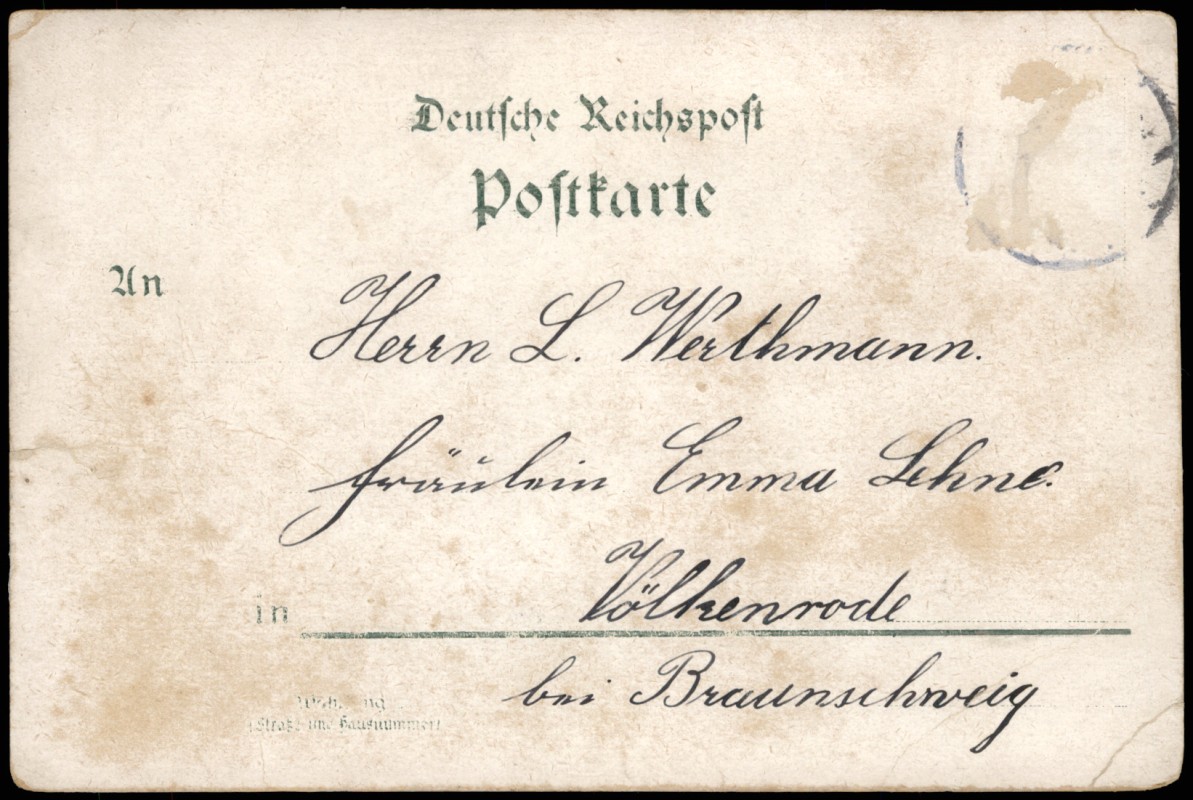 Deutsche Reichspost
Postkarte
An
Herrn L. Werthmann.
Fräulein Emma Lehne.
in Völkenrode
bei Braunschweig
(Straße und Hausnummer)